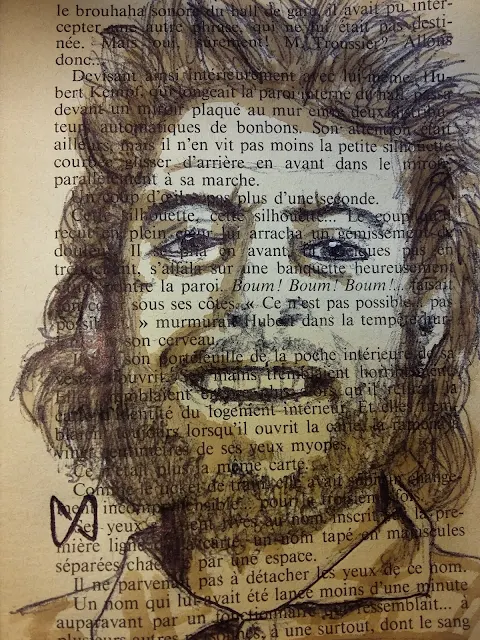 le brouhaha sonore du hall de gare, il avait pu inter-
cepter une autre phrase, qui ne lui était pas desti-
née. Mais oui, sûrement! M. Troussier? Allons
donc...
Devisant ainsi intérieurement avec lui-même, Hu-
bert Kempf, qui longeait la paroi interne du hall, passa
devant un miroir plaqué au mur entre deux distribu-
teurs automatiques de bonbons. Son attention était
ailleurs, mais il n'en vit pas moins la petite silhouette
courbée glisser d'arrière en avant dans le miroir,
parallèlement à sa marche.
Un coup d'œil, pas plus d'une seconde.
Cette silhouette, cette silhouette... Le coup
reçu en plein cœur lui arracha un gémissement de
douleur. Il se plia en avant, pas en
trébuchant, s'affala sur une banquette heureusement
contre la paroi. Boum! Boum! Boum!... faisait
son cœur sous ses côtes. « Ce n'est pas possible, pas
possible » murmurait Hubert dans la tempête
son cerveau.
Il son portefeuille de la poche intérieure de sa
veste, ouvrit. mains tremblaient horriblement.
Et tremblaient encore plus qu'il la
carte d'identité du logement intérieur. Et elles
toujours lorsqu'il ouvrit la carte, la ramena à
vingt centimètres de ses yeux myopes.
Ce n'était plus la même carte.
Comme le ticket de train, elle avait subi un change-
ment incompréhensible... pour la troisième fois.
Ses yeux étaient rivés au nom inscrit sur la pre-
mière ligne carte, un nom tapé en majuscules
séparées chacune par une espace.
Il ne parvenait pas à détacher les yeux de ce nom.
Un nom qui lui avait été lancé moins d'une minute
auparavant par un fonctionnaire qui ressemblait... à
plusieurs autres personnes, à une surtout, dont le sang